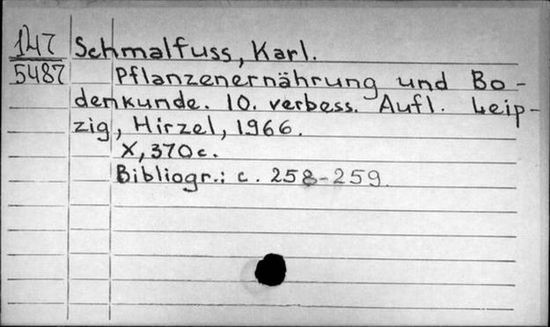 147
5487
Schmalfuss, Karl.
Pflanzenernährung und Bo-
denkunde. 10. verbess. Aufl. Leip-
zig, Hirzel, 1966.
X, 370 c.
Bibliogr.: c. 258-259.